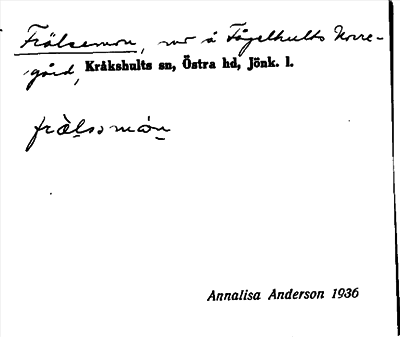 Frälsemon, å Fågelhults Norre-
gård, Kråkshults sn, Östra hd, Jönk. l.
Annalisa Anderson 1936